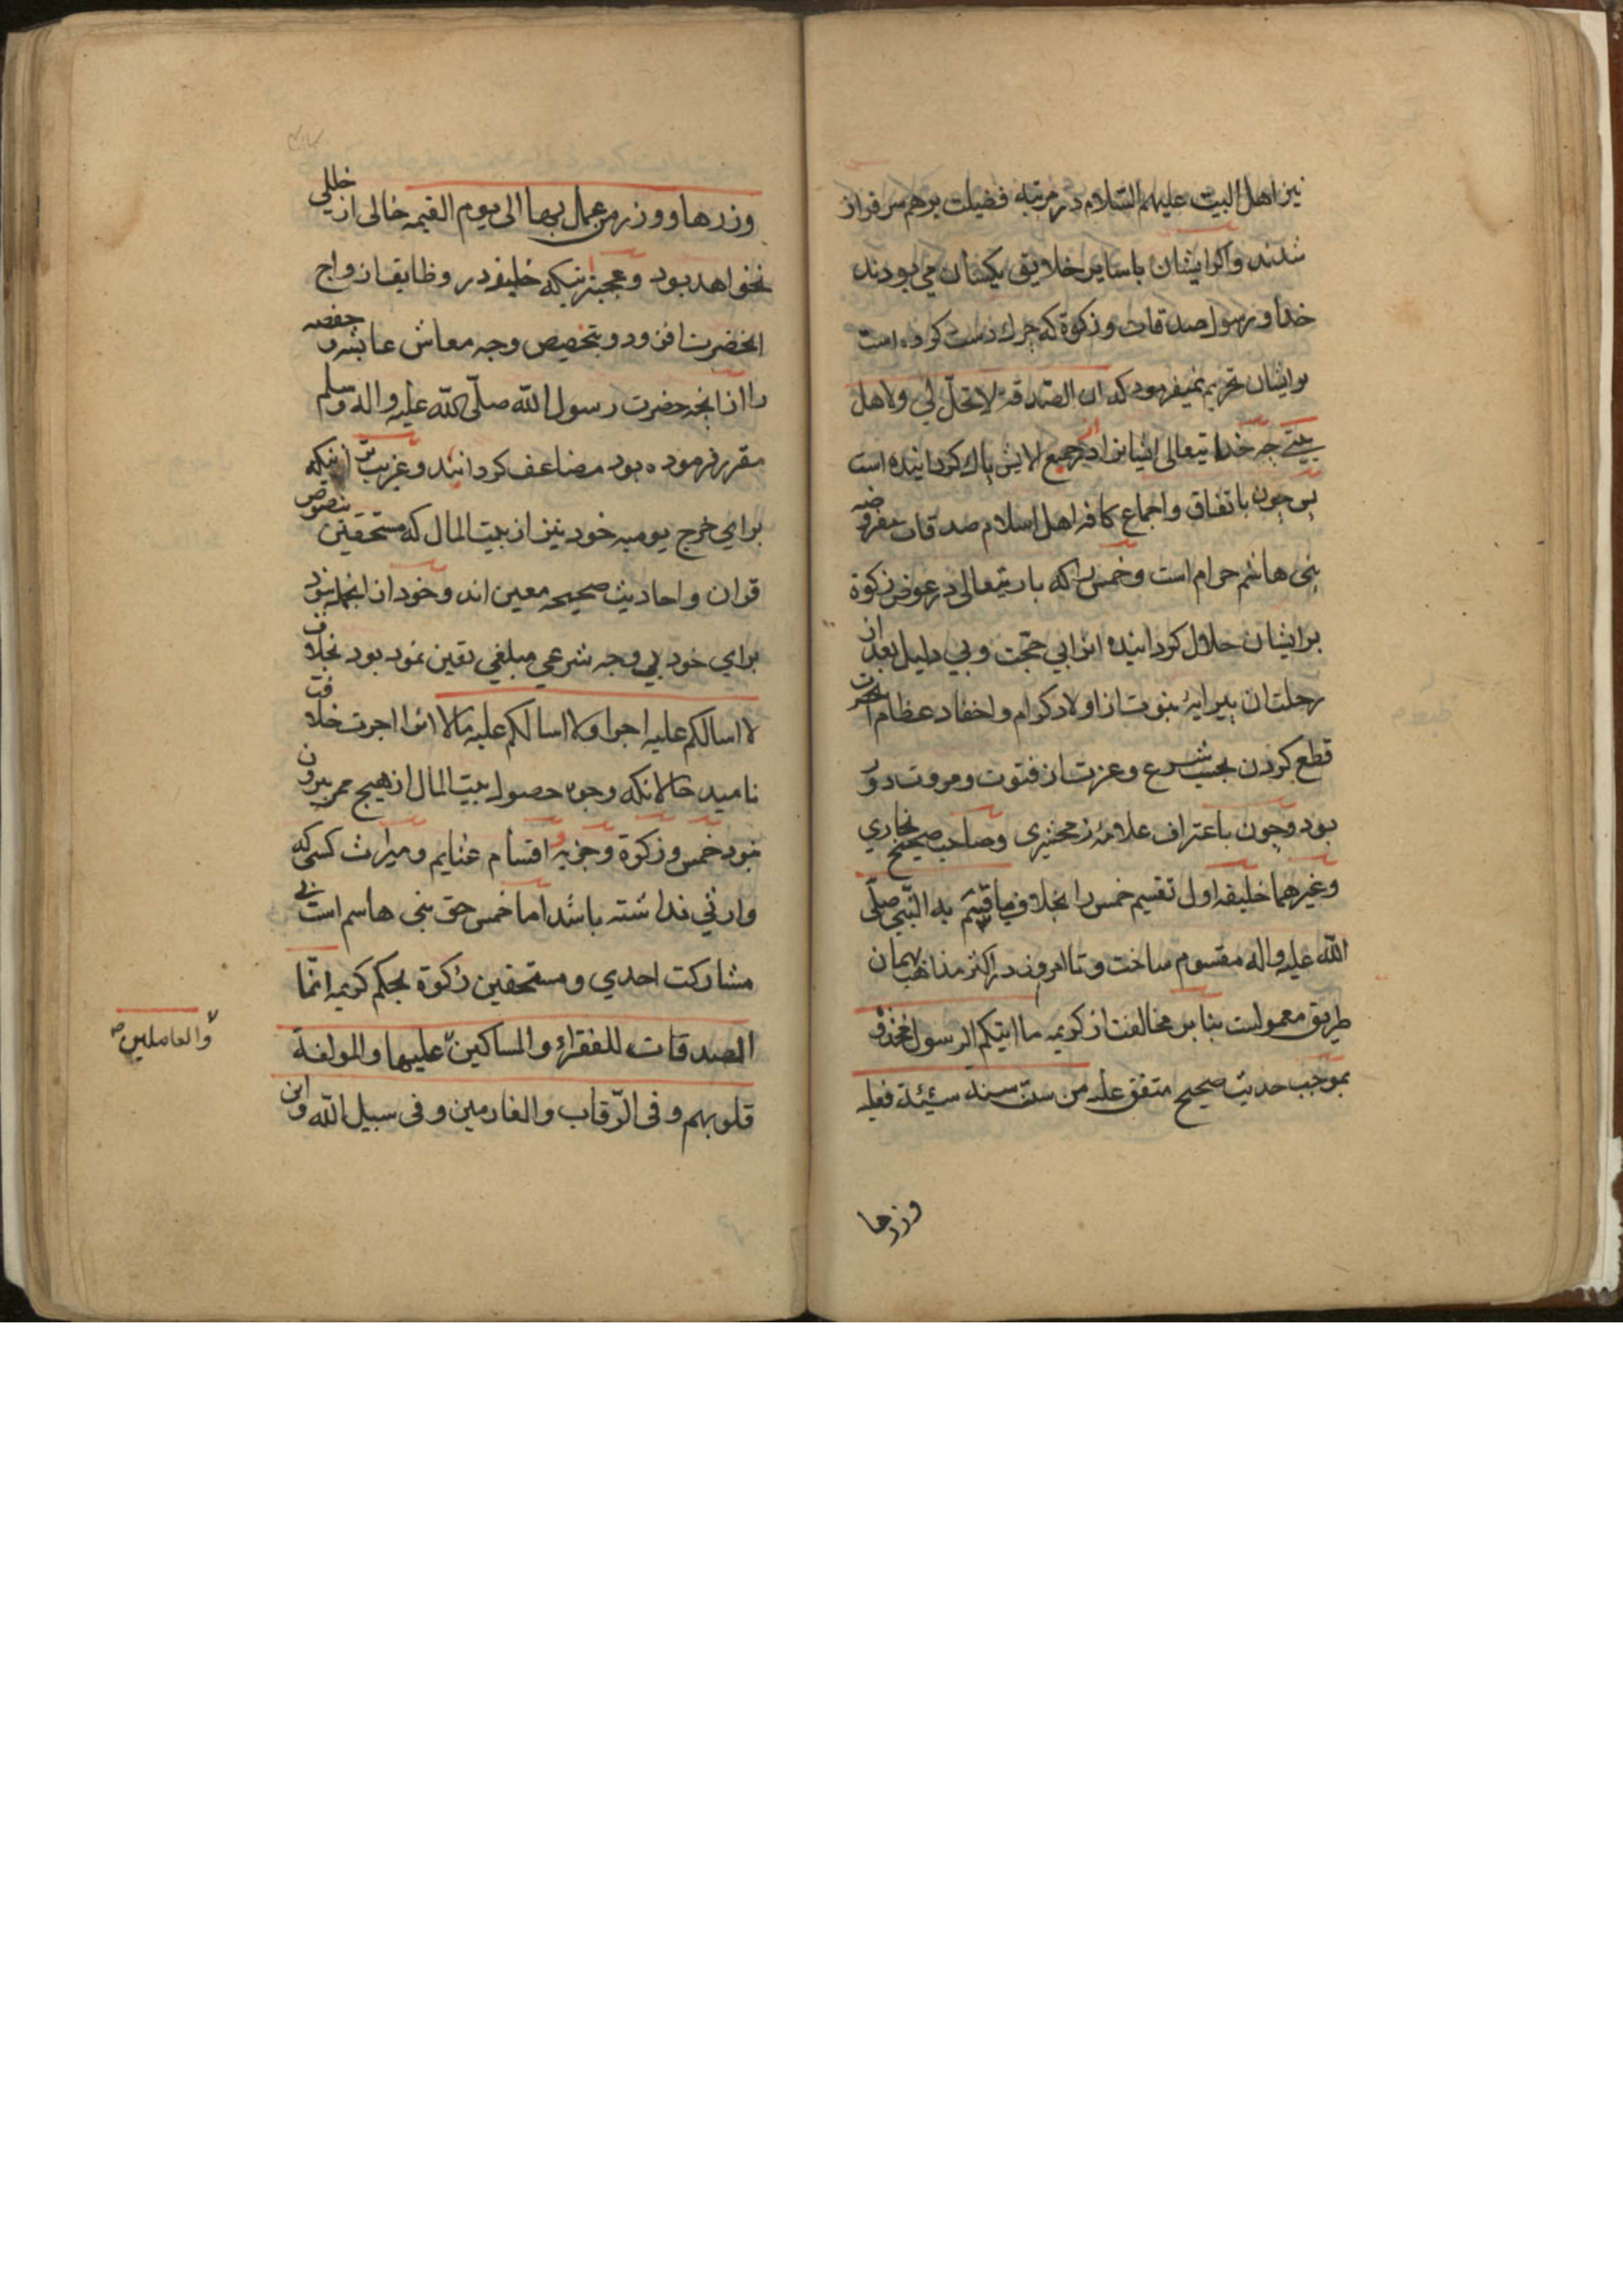 نیز اهل البیت علیهم السّلام در مرتبه فضیلت برهم سرفراز
شدند و اکر ایشان باسایر خلایق یکسان می بودند
خدا و رسول صدقات و زکوة که چرك دست کرده است
برایشان تحریم نمیفرمود که ان الصّدقة لا تحلّ لی ولاهل
بیتی چه خدایتعالی ایشانرا از جمیع الایش پاك کردانیده است
پس چون باتفاق و اجماع کافه اهل اسلام صدقات مفروضه
بنی هاشم حرام است و خمس را که باریتعالی در عوض زکوة
برایشان حلال کردانیده انرا بی حجت و بی دلیل بعد از
رحلت ان پیرایهٔ نبوت از اولاد کرام و احفاد عظام انحضرت
قطع کردن بحسب شرع و عزت از فتوت و مروت دور
بود و چون باعتراف علامه زمخشری و صاحب صحیح بخاری
و غیرهما خلیفه اول تقسیم خمس را بخلاف ما قسّم به النّبی صلّی
الله علیه واله مقسوم ساخت و تا امروز در اکثر مذاهب بهمان
طریق معمولست بنابر مخالفت از کریمه ما اتیکم الرسول فخذوه
بموجب حدیث صحیح متفق علیه من سنّ سنة سیّئة فعلیه
وزرها
وزرها و وزر من عمل بها الی یوم القیمه خالی از خللی
نخواهد بود و عجبتر اینکه خلیفه در وظایف ازواج
انحضرت افزود و بتخصیص وجه معاش عایشه و حفصه
را از انچه حضرت رسول الله صلّی الله علیه واله وسلم
مقرر فرموده بود مضاعف کردانید و غریب تر اینکه
برای خرج یومیه خود نیز از بیت المال که مستحقین بنصوص
قران و احادیث صحیحه معین اند و خود از انجمله نبود
برای خود بی وجه شرعی مبلغی تعین نمود بود بخلاف
لا اسالکم علیه اجرا ولا اسالکم علیه مالا انرا اجرت خلافت
نامید حالانکه وجوه حصول بیت المال از هیچ ممر بیرون
نبود خمس و زکوة و جزیه و اقسام غنایم و میراث کسی که
وارثی نداشته باشد اما خمس حق بنی هاشم است بی
مشارکت احدی و مستحقین زکوة بحکم کریمه انّما
الصدقات للفقراء والمساکین علیها والمولفة
والعاملین صح
قلوبهم و فی الرّقاب والغارمین و فی سبیل الله وابن